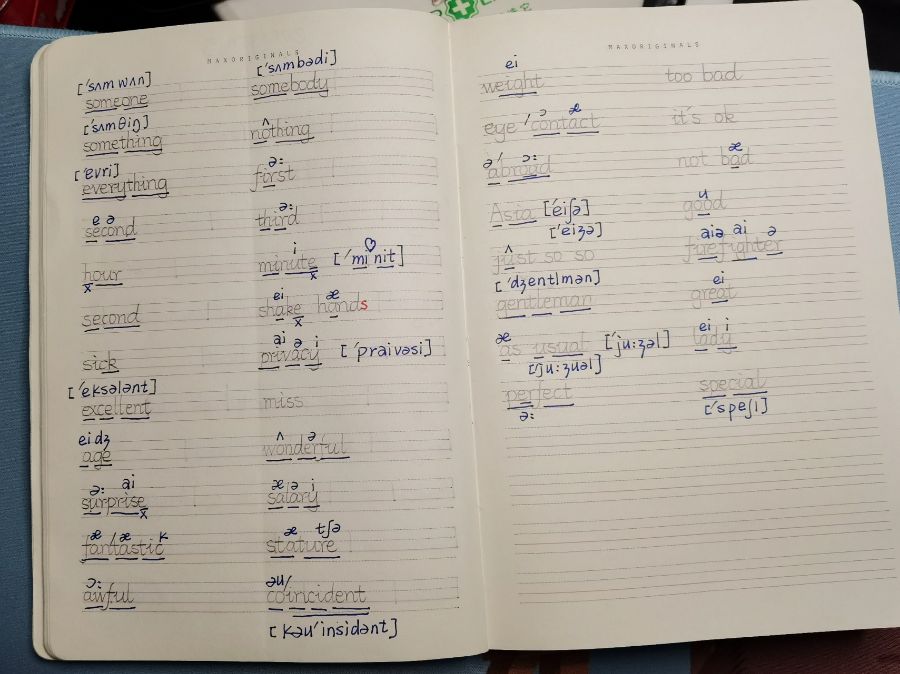 MAXORIGINALS
['sʌm wʌn] ['sʌmbədi]
someone somebody
['sʌmθiŋ] ʌ
something nothing
['evri] ə:
everything first
e ə ə:
second third
i
hour minute ['mi nit]
x x
ei æ
second shake hands
x
ai ə i
sick privacy ['praivəsi]
['eksələnt]
excellent miss
eidʒ ʌ ə
age wonderful
ə: ai æ ə i
surprise salary
x
æ ' æ k æ tʃə
fantastic stature
ɔ: əu'
awful coincident
[kəu'insidənt]
MAXORIGINALS
ei
weight too bad
' ɔ æ
eye contact it's ok
ə ' ɔ: æ
abroad not bad
u
Asia ['eiʃə] good
['eiʒə]
ʌ aiə ai ə
just so so firefighter
['dʒentlmən] ei
gentleman great
æ ei i
as usual ['ju:ʒəl] lady
['ju:ʒuəl]
perfect special
ə: ['speʃl]